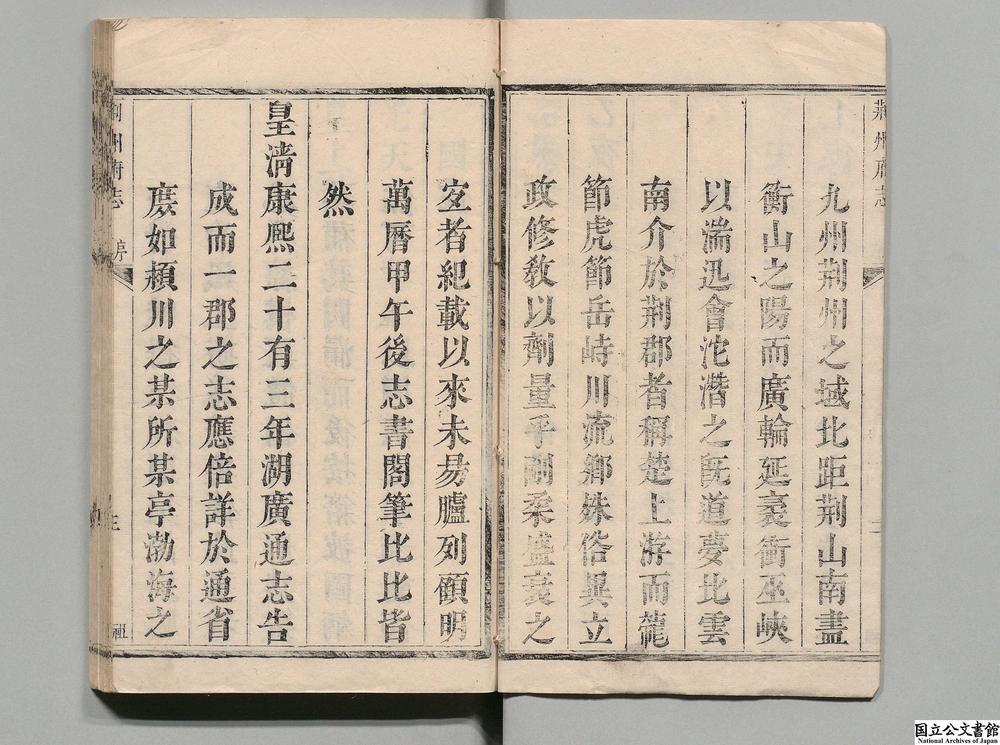 荆州府志
九州荆州之域北距荆山南盡
衡山之陽而廣輪延袤衝巫峽
以湍迅會沱潛之旣道夢比雲
南介於荆郡者稱楚上游而龍
節虎節岳峙川流鄉殊俗異立
政修敎以劑量乎剛柔盛衰之
宜者紀載以來未易臚列顧明
萬曆甲午後志書閣筆比比皆
然
皇淸康熙二十有三年湖廣通志告
成而一郡之志應倍詳於通省
庶如潁川之某所某亭渤海之
荆州府志 序
国立公文書館
National Archives of Japan